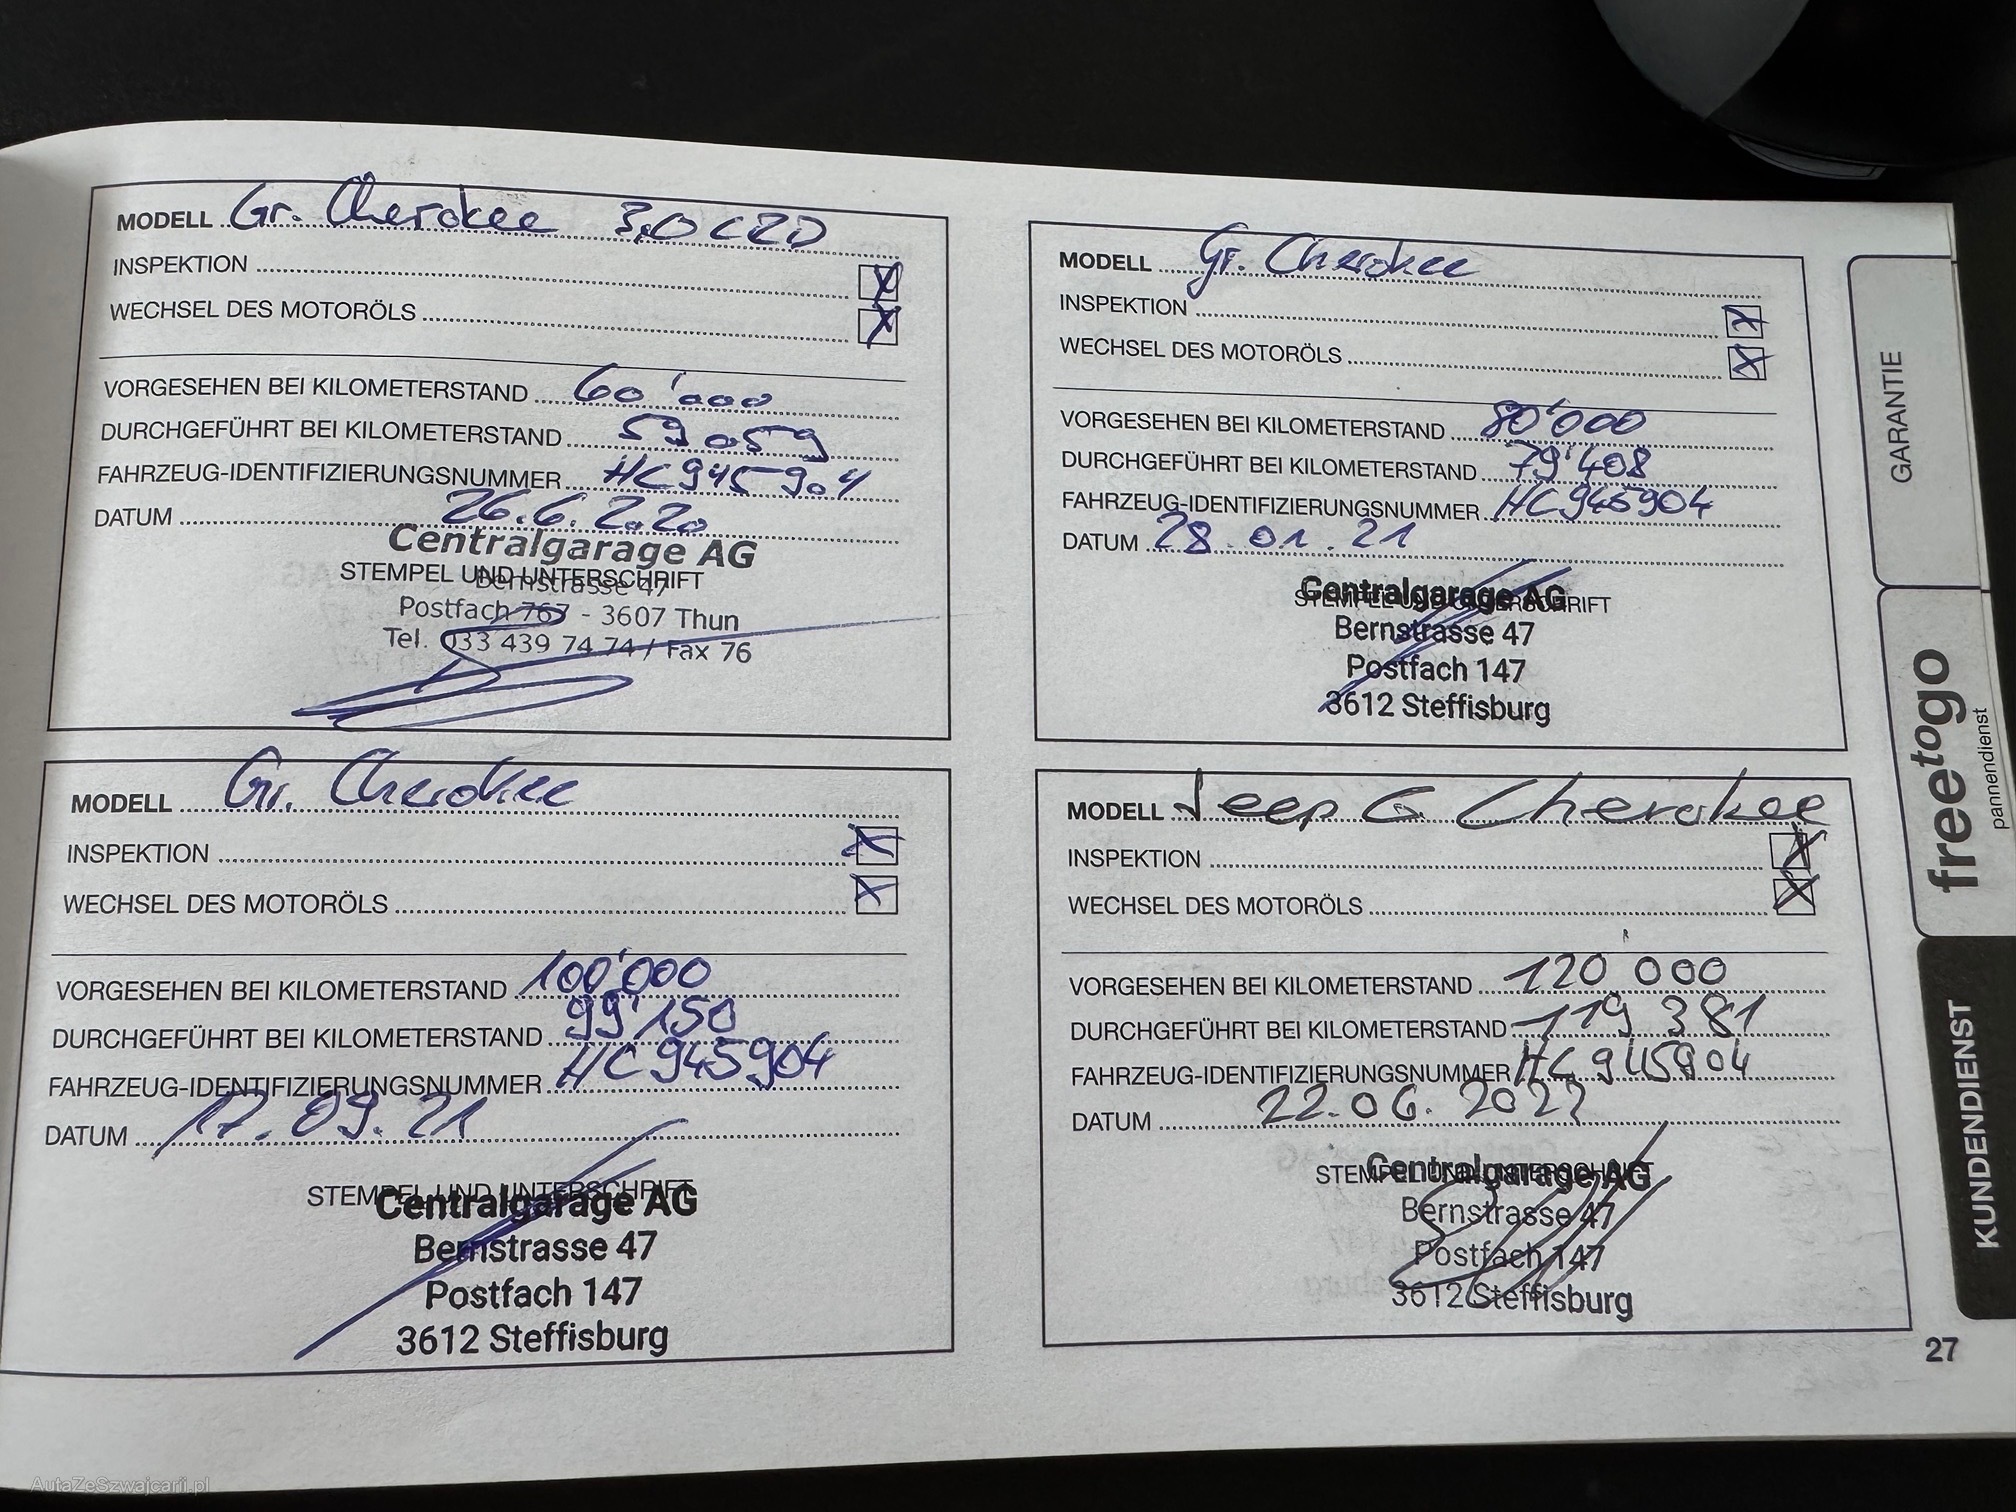 MODELL Gr. Cherokee 3,0 CRD
INSPEKTION X
WECHSEL DES MOTORÖLS X
VORGESEHEN BEI KILOMETERSTAND 60'000
DURCHGEFÜHRT BEI KILOMETERSTAND 59059
FAHRZEUG-IDENTIFIZIERUNGSNUMMER HC945904
DATUM 26.6.2020
Centralgarage AG
STEMPEL UND UNTERSCHRIFT
Bernstrasse 47
Postfach 767 - 3607 Thun
Tel. 033 439 74 74 / Fax 76
MODELL Gr. Cherokee
INSPEKTION X
WECHSEL DES MOTORÖLS X
VORGESEHEN BEI KILOMETERSTAND 80'000
DURCHGEFÜHRT BEI KILOMETERSTAND 79'408
FAHRZEUG-IDENTIFIZIERUNGSNUMMER HC945904
DATUM 28.01.21
Centralgarage AG
STEMPEL UND UNTERSCHRIFT
Bernstrasse 47
Postfach 147
3612 Steffisburg
MODELL Gr. Cherokee
INSPEKTION X
WECHSEL DES MOTORÖLS X
VORGESEHEN BEI KILOMETERSTAND 100'000
DURCHGEFÜHRT BEI KILOMETERSTAND 99'150
FAHRZEUG-IDENTIFIZIERUNGSNUMMER HC945904
DATUM 17.09.21
STEMPEL UND UNTERSCHRIFT
Centralgarage AG
Bernstrasse 47
Postfach 147
3612 Steffisburg
MODELL Jeep G Cherokee
INSPEKTION X
WECHSEL DES MOTORÖLS X
VORGESEHEN BEI KILOMETERSTAND 120 000
DURCHGEFÜHRT BEI KILOMETERSTAND 119 381
FAHRZEUG-IDENTIFIZIERUNGSNUMMER HC945904
DATUM 22.06.2022
STEMPEL UND UNTERSCHRIFT
Centralgarage AG
Bernstrasse 47
Postfach 147
3612 Steffisburg
GARANTIE
freetogo
pannendienst
KUNDENDIENST
27
AutaZeSzwajcarii.pl